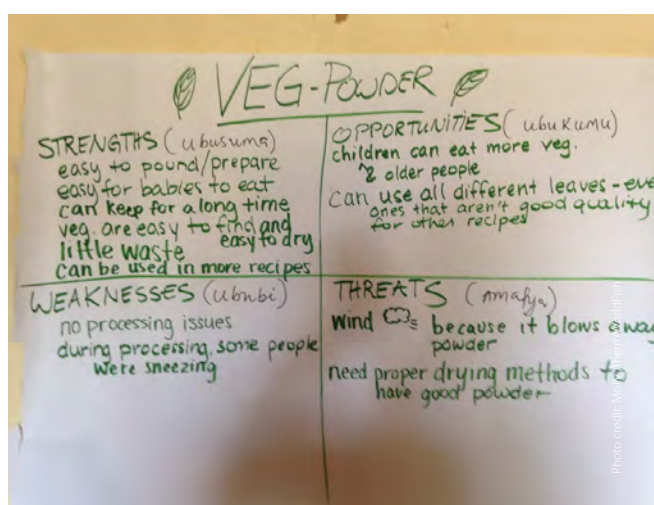 VEG-POWDER
STRENGTHS (ubusuma)
easy to pound/prepare
easy for babies to eat
can keep for a long time
veg. are easy to find and
easy to dry
little waste
can be used in more recipes
OPPORTUNITIES (ubukumu)
children can eat more veg.
& older people
Can use all different leaves - eve
ones that aren't good quality
for other recipes
WEAKNESSES (ububi)
no processing issues
during processing, some people
were sneezing
THREATS (Amafya)
wind because it blows away
powder
need proper drying methods to
have good powder
Photo credit: